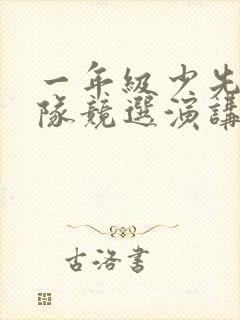 一年級少先
隊競選演講
古洛書